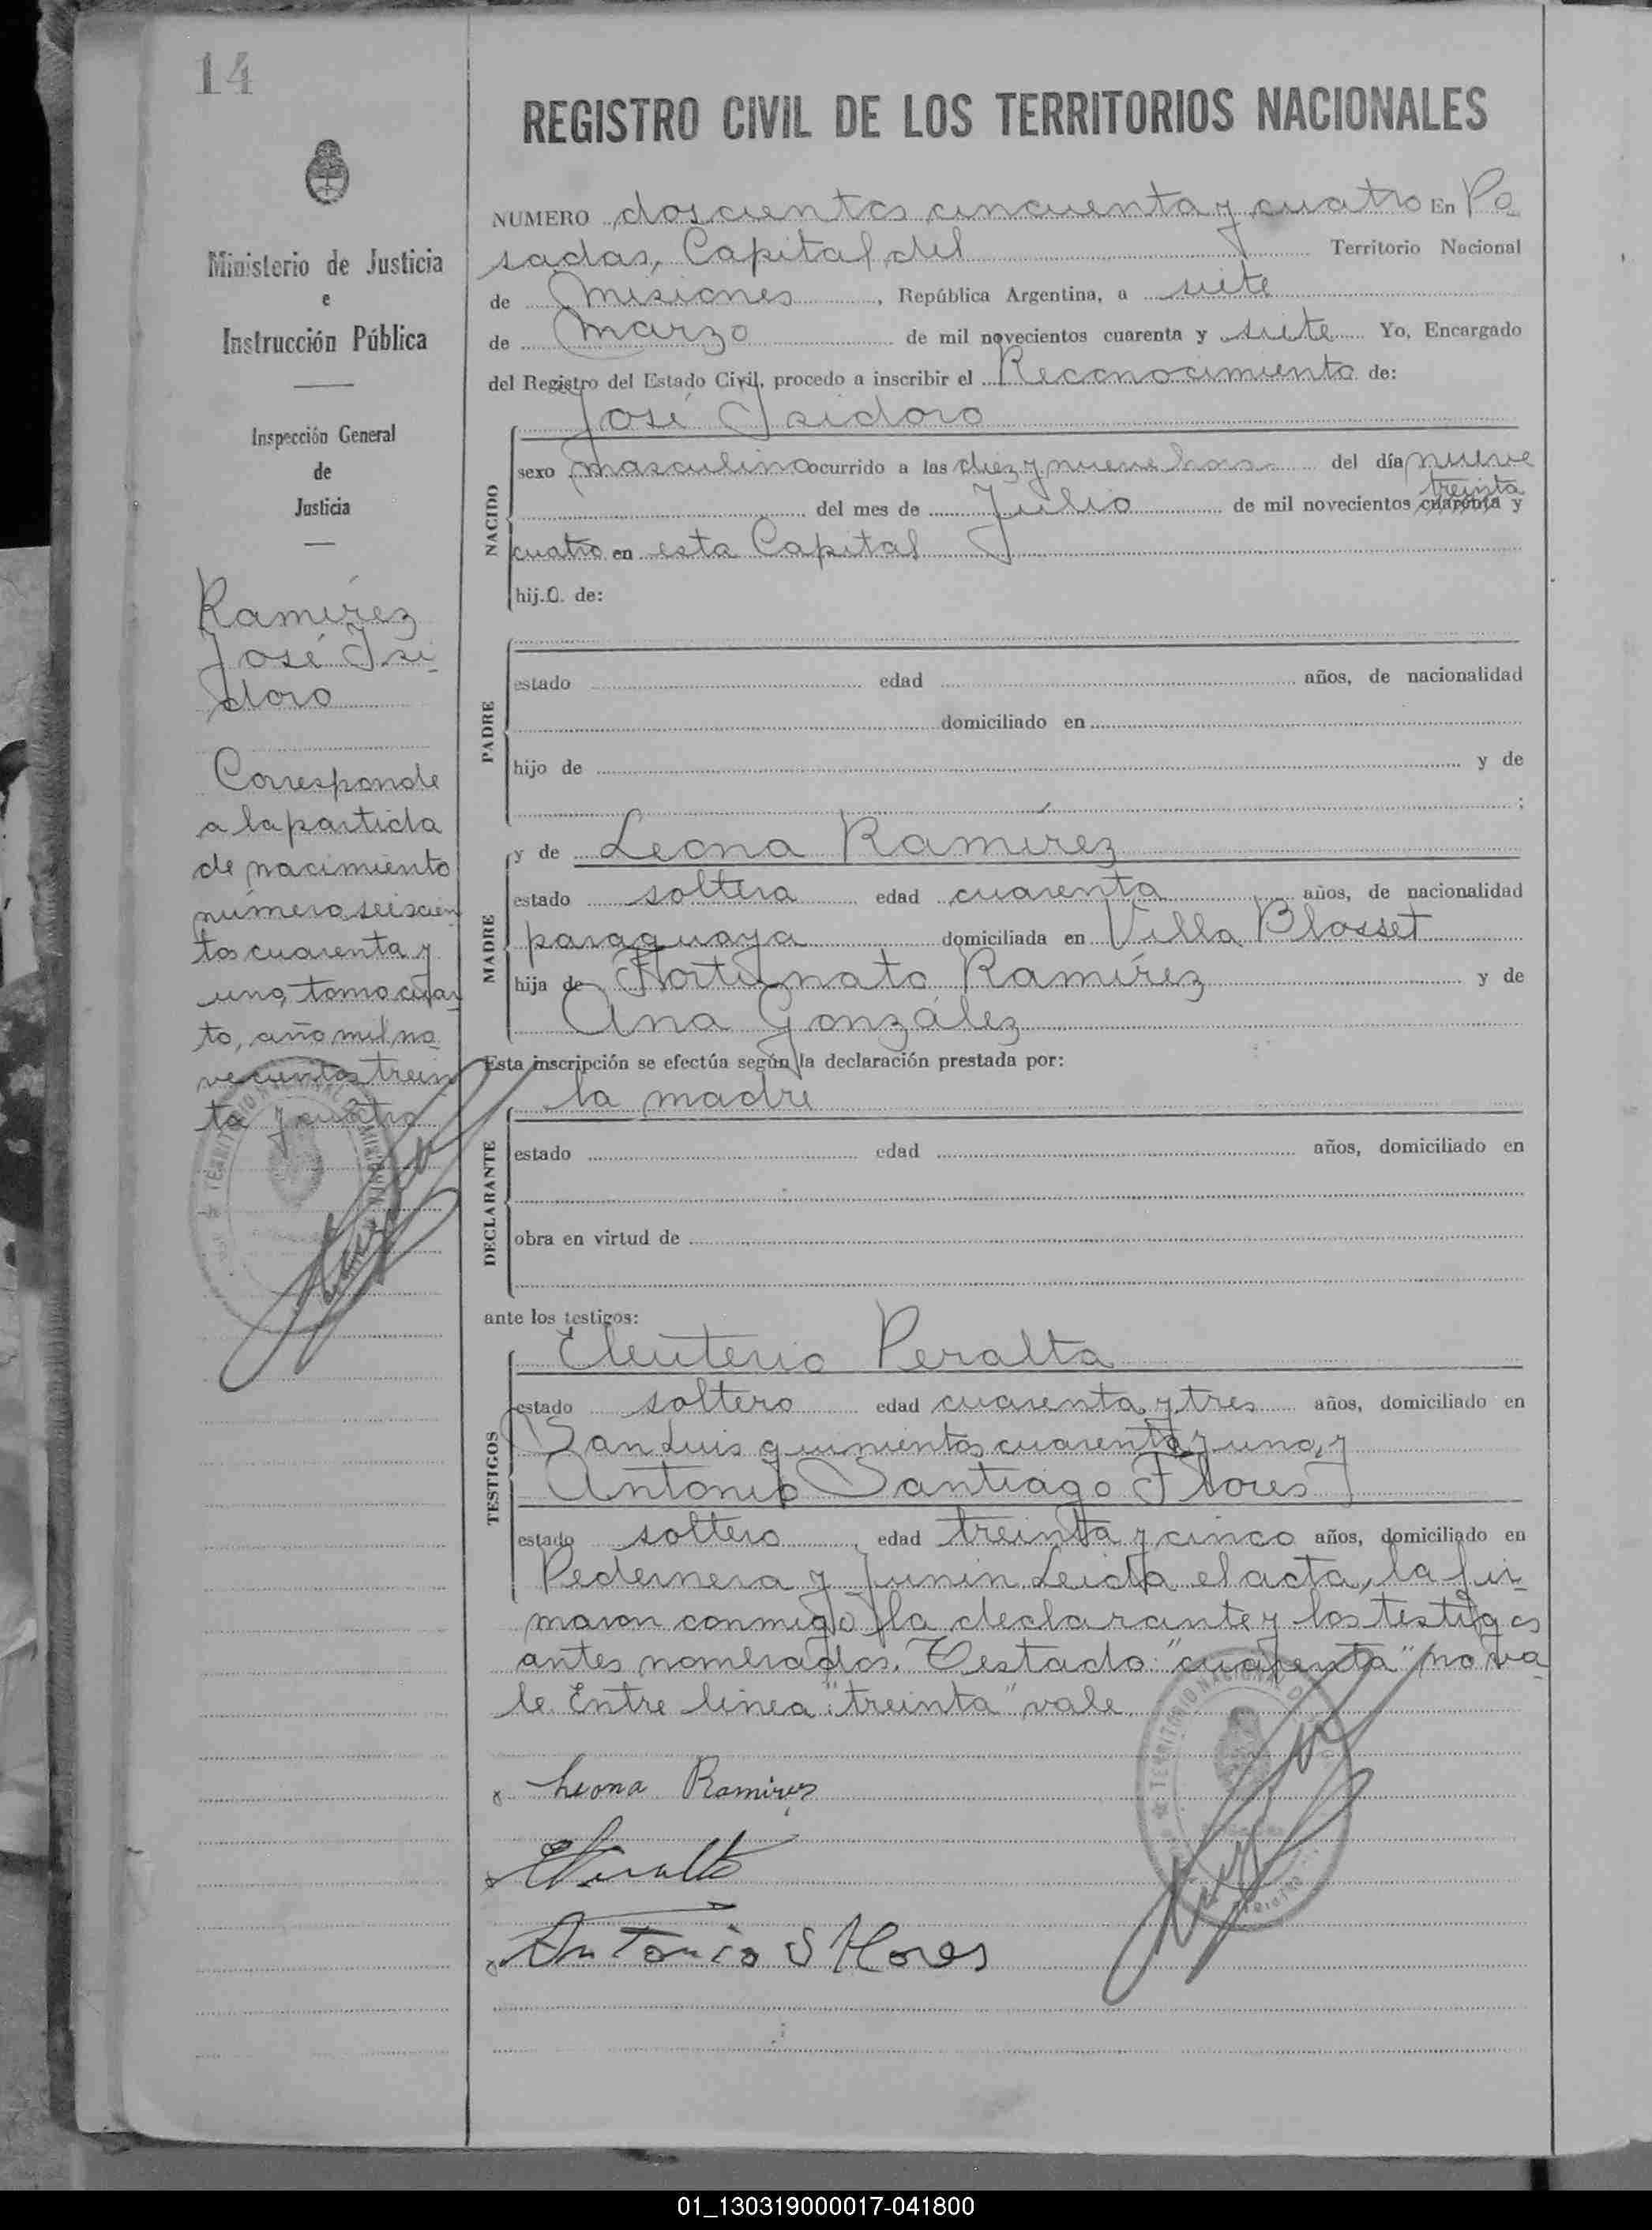 14
REGISTRO CIVIL DE LOS TERRITORIOS NACIONALES
Ministerio de Justicia
e
Instrucción Pública
Inspección General
de
Justicia
Ramírez
José Isi-
doro
Corresponde
a la partida
de nacimiento
número seiscien
tos cuarenta y
uno, tomo cuar
to, año mil no-
vecientos trein
ta y cuatro
NUMERO doscientos cincuenta y cuatro En Po-
sadas, Capital del Territorio Nacional
de Misiones, República Argentina, a siete
de Marzo de mil novecientos cuarenta y siete Yo, Encargado
del Registro del Estado Civil, procedo a inscribir el Reconocimiento de:
José Isidoro
NACIDO
sexo masculino ocurrido a las diez y nueve hras. del día nueve
treinta
del mes de Julio de mil novecientos cuarenta y
cuatro en esta Capital
hij.o. de:
PADRE
estado edad años, de nacionalidad
domiciliado en
hijo de y de
;
y de Leona Ramírez
MADRE
estado soltera edad cuarenta años, de nacionalidad
paraguaya domiciliada en Villa Blosset
hija de Fortunato Ramírez y de
Ana González
Esta inscripción se efectúa según la declaración prestada por:
la madre
DECLARANTE
estado edad años, domiciliado en
obra en virtud de
ante los testigos:
Eleuterio Peralta
TESTIGOS
estado soltero edad cuarenta y tres años, domiciliado en
San Luis quinientos cuarenta y uno, y
Antonio Santiago Flores
estado soltero, edad treinta y cinco años, domiciliado en
Pedernera y Junin Leida el acta, la fir-
maron conmigo la declarante y los testigos
antes nombrados. Testado: "cuarenta" no va-
le. Entre linea: "treinta" vale.
Leona Ramirez
EPeralta
Antonio S Flores
TERRITORIO NACIONAL
01_130319000017-041800